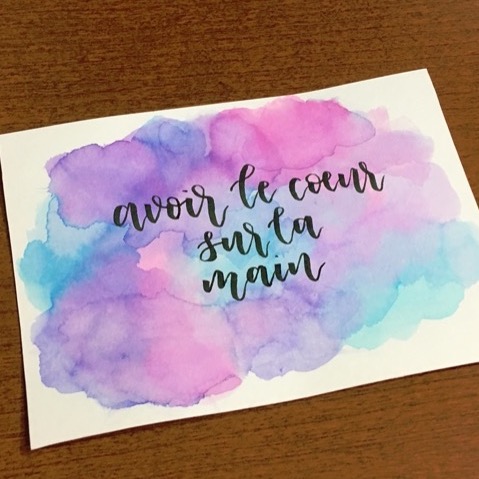 avoir le coeur
sur la
main